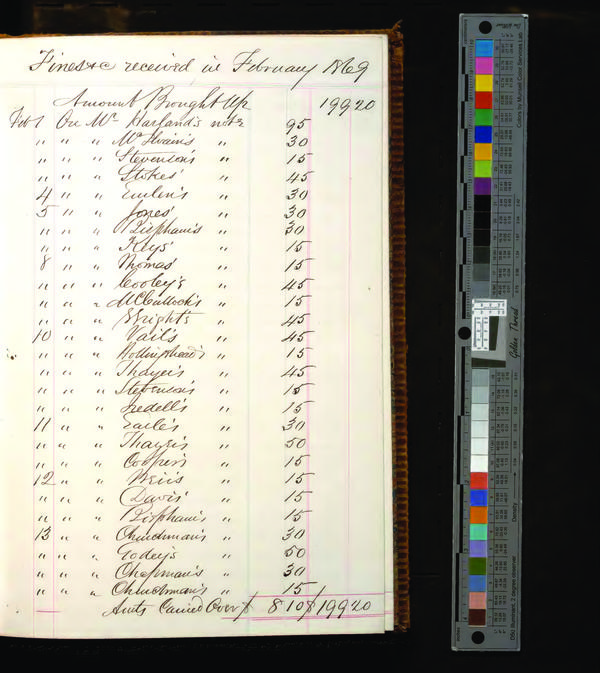 Fines &c received in February 1869
Amount Brought Up 199 20
Feb 1 On Mr Harland's note 95
" " " McIlvain's " 30
" " " Stevenson's " 15
" " " Stokes' " 45
4 " " Emlen's " 30
5 " " Jones' " 30
" " " Bispham's " 30
" " " Keys' " 15
8 " " Thomas' " 15
" " " Cooley's " 45
" " " McCullock's " 15
" " " Wright's " 45
10 " " Vail's " 45
" " " Hollingshead's " 15
" " " Thayer's " 45
" " " Stevenson's " 15
" " " Iredell's " 15
11 " " Earle's " 30
" " " Thayer's " 50
" " " Cooper's " 15
12 " " Weir's " 15
" " " Davis' " 15
" " " Bispham's " 15
13 " " Churchman's " 30
" " " Godey's " 50
" " " Chapman's " 30
" " " Churchman's " 15
Amts Carried Over $ 8 10 $ 199 20
Golden Thread